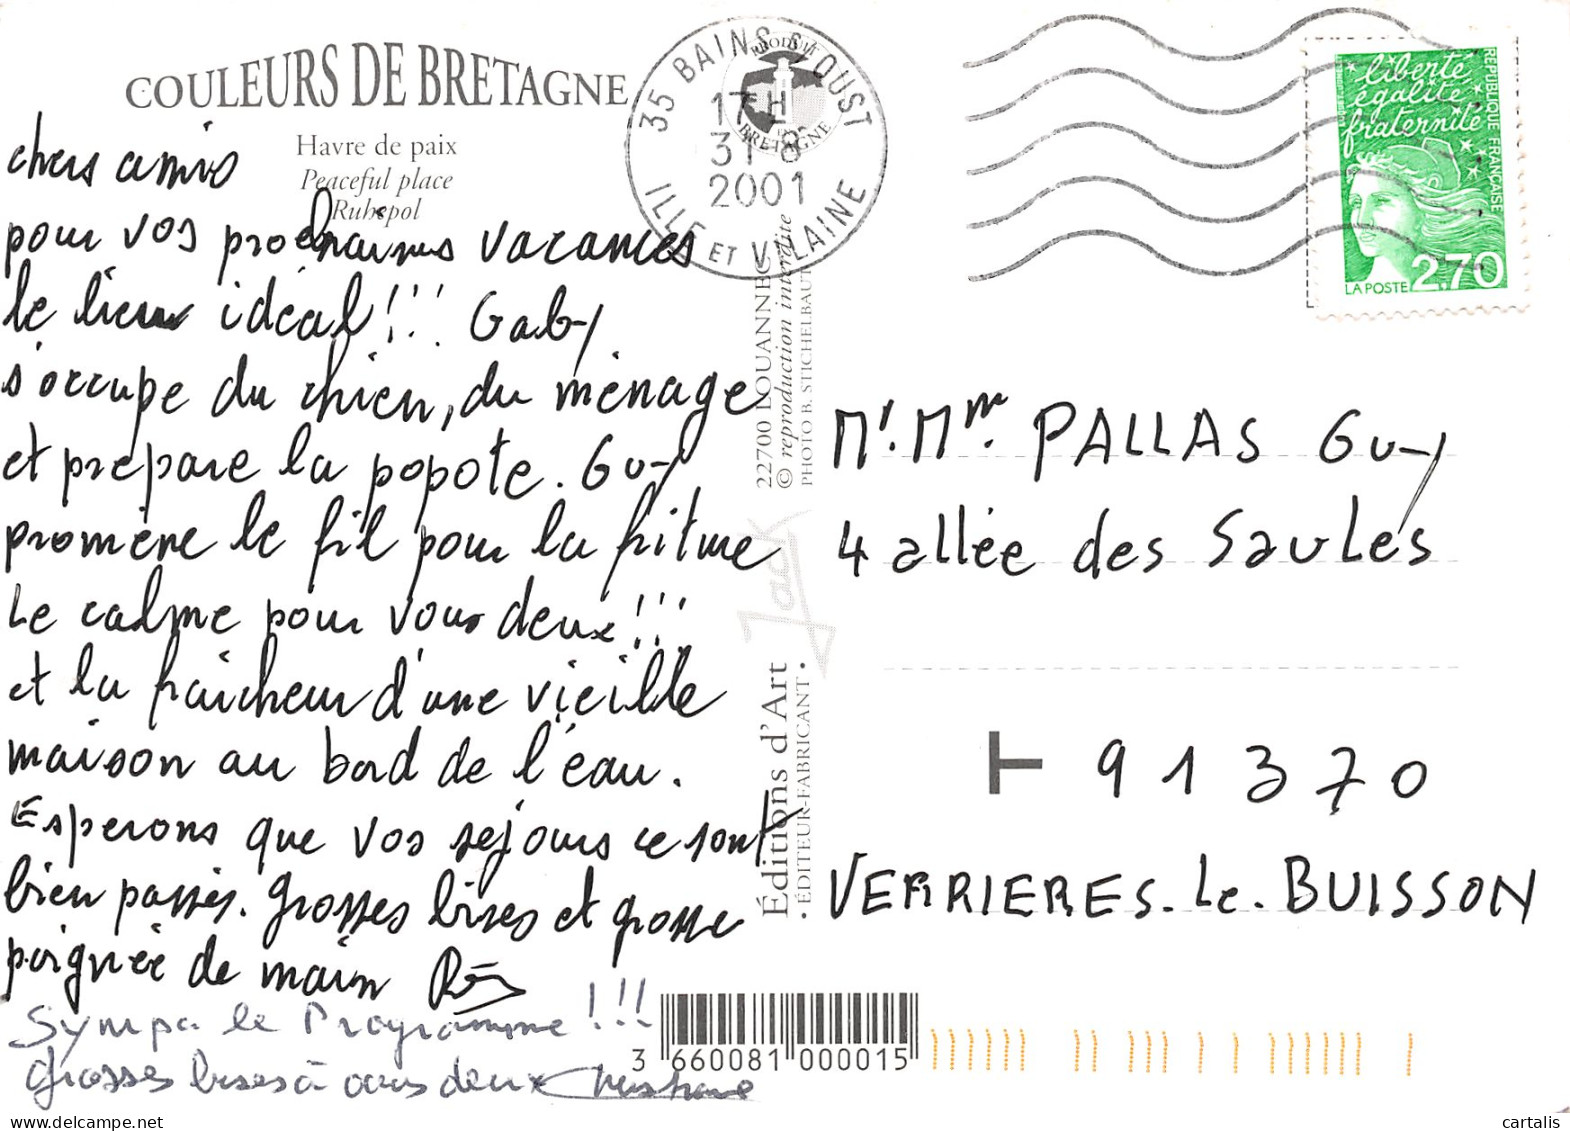 COULEURS DE BRETAGNE
Havre de paix
Peaceful place
Ruhepol
chers amis
pour vos prochaines vacances
le lieu idéal!!! Gaby
s'occupe du chien, du ménage
et prépare la popote. Guy
promène le fil pour la friture
Le calme pour vous deux!!!
et la fraicheur d'une vieille
maison au bord de l'eau.
Esperons que vos séjours ce sont
bien passés. grosses bises et grosse
poignée de main
Sympa le Programme!!!
grosses bises à vous deux Christiane
35 BAINS S/OUST
17 H
31 -8
2001
ILLE ET VILAINE
PRODUIT
EN
BRETAGNE
22700 LOUANNEC
© reproduction interdite
PHOTO B. STICHELBAUT
Jack
Éditions d'Art
• ÉDITEUR-FABRICANT •
liberté
égalité
fraternité
REPUBLIQUE FRANÇAISE
LA POSTE 2,70
Mr. Mme. PALLAS Guy
4 allée des Saules
91370
VERRIERES-Le-BUISSON
3 660081 000015
www.delcampe.net
cartalis